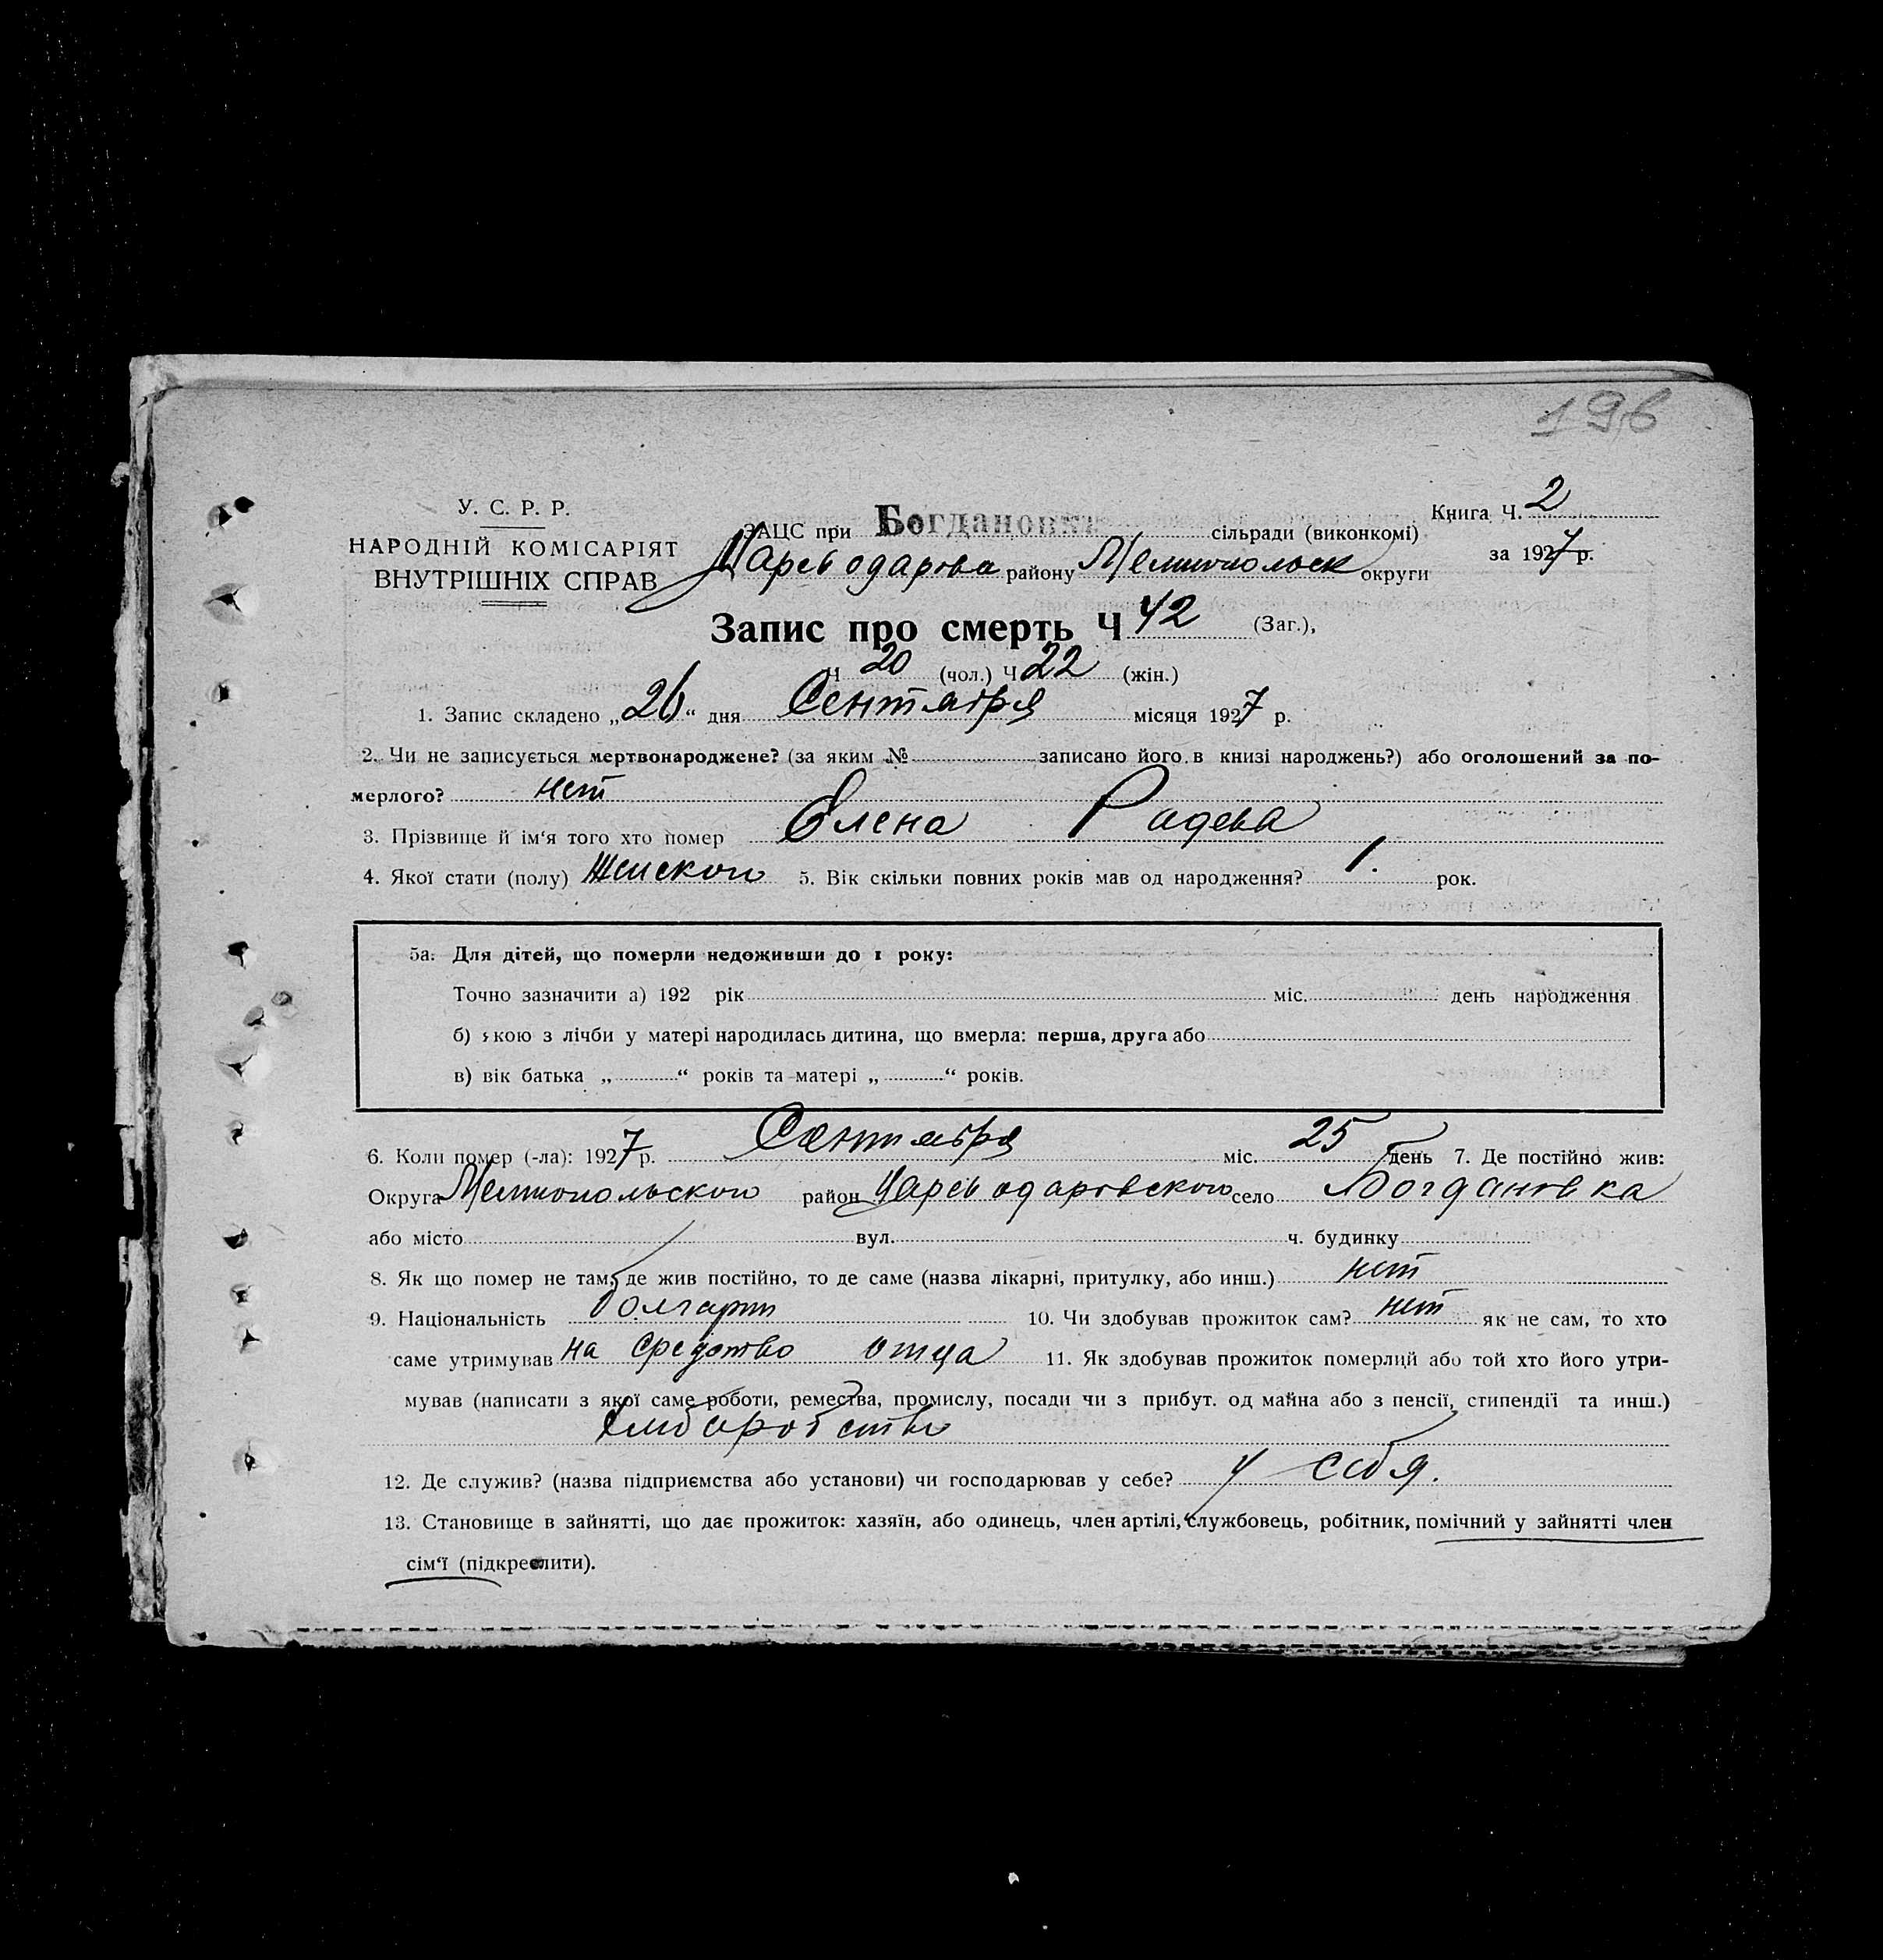 196
У. С. Р. Р.
НАРОДНІЙ КОМІСАРІЯТ
ВНУТРІШНІХ СПРАВ
ЗАЦС при Богдановка сільради (виконкомі)
Цареводарова району Мелитопольск округи
Книга Ч. 2
за 1927 р.
Запис про смерть Ч 42 (Заг.),
Ч 20 (чол.) Ч 22 (жін.)
1. Запис складено „26“ дня Сентября місяця 1927 р.
2. Чи не записується мертвонароджене? (за яким № записано його в книзі народжень?) або оголошений за по-
мерлого? нет
3. Прізвище й ім‘я того хто помер Елена Радева
4. Якої стати (полу) Женского 5. Вік скільки повних років мав од народження? 1. рок.
5а. Для дітей, що померли недоживши до 1 року:
Точно зазначити а) 192 рік міс. день народження
б) якою з лічби у матері народилась дитина, що вмерла: перша, друга або
в) вік батька „ “ років та матері „ “ років.
6. Коли помер (-ла): 1927 р. Сентября міс. 25 день 7. Де постійно жив:
Округа Мелитопольского район Цареводаровского село Богдановка
або місто вул. ч. будинку
8. Як що помер не там, де жив постійно, то де саме (назва лікарні, притулку, або инш.) нет
9. Національність болгарин 10. Чи здобував прожиток сам? нет як не сам, то хто
саме утримував на средство отца 11. Як здобував прожиток померлий або той хто його утри-
мував (написати з якої саме роботи, ремества, промислу, посади чи з прибут. од майна або з пенсії, стипендії та инш.)
хлебаробство
12. Де служив? (назва підприємства або установи) чи господарював у себе? у себя.
13. Становище в зайнятті, що дає прожиток: хазяїн, або одинець, член артілі, службовець, робітник, помічний у зайнятті член
сім‘ї (підкреслити).